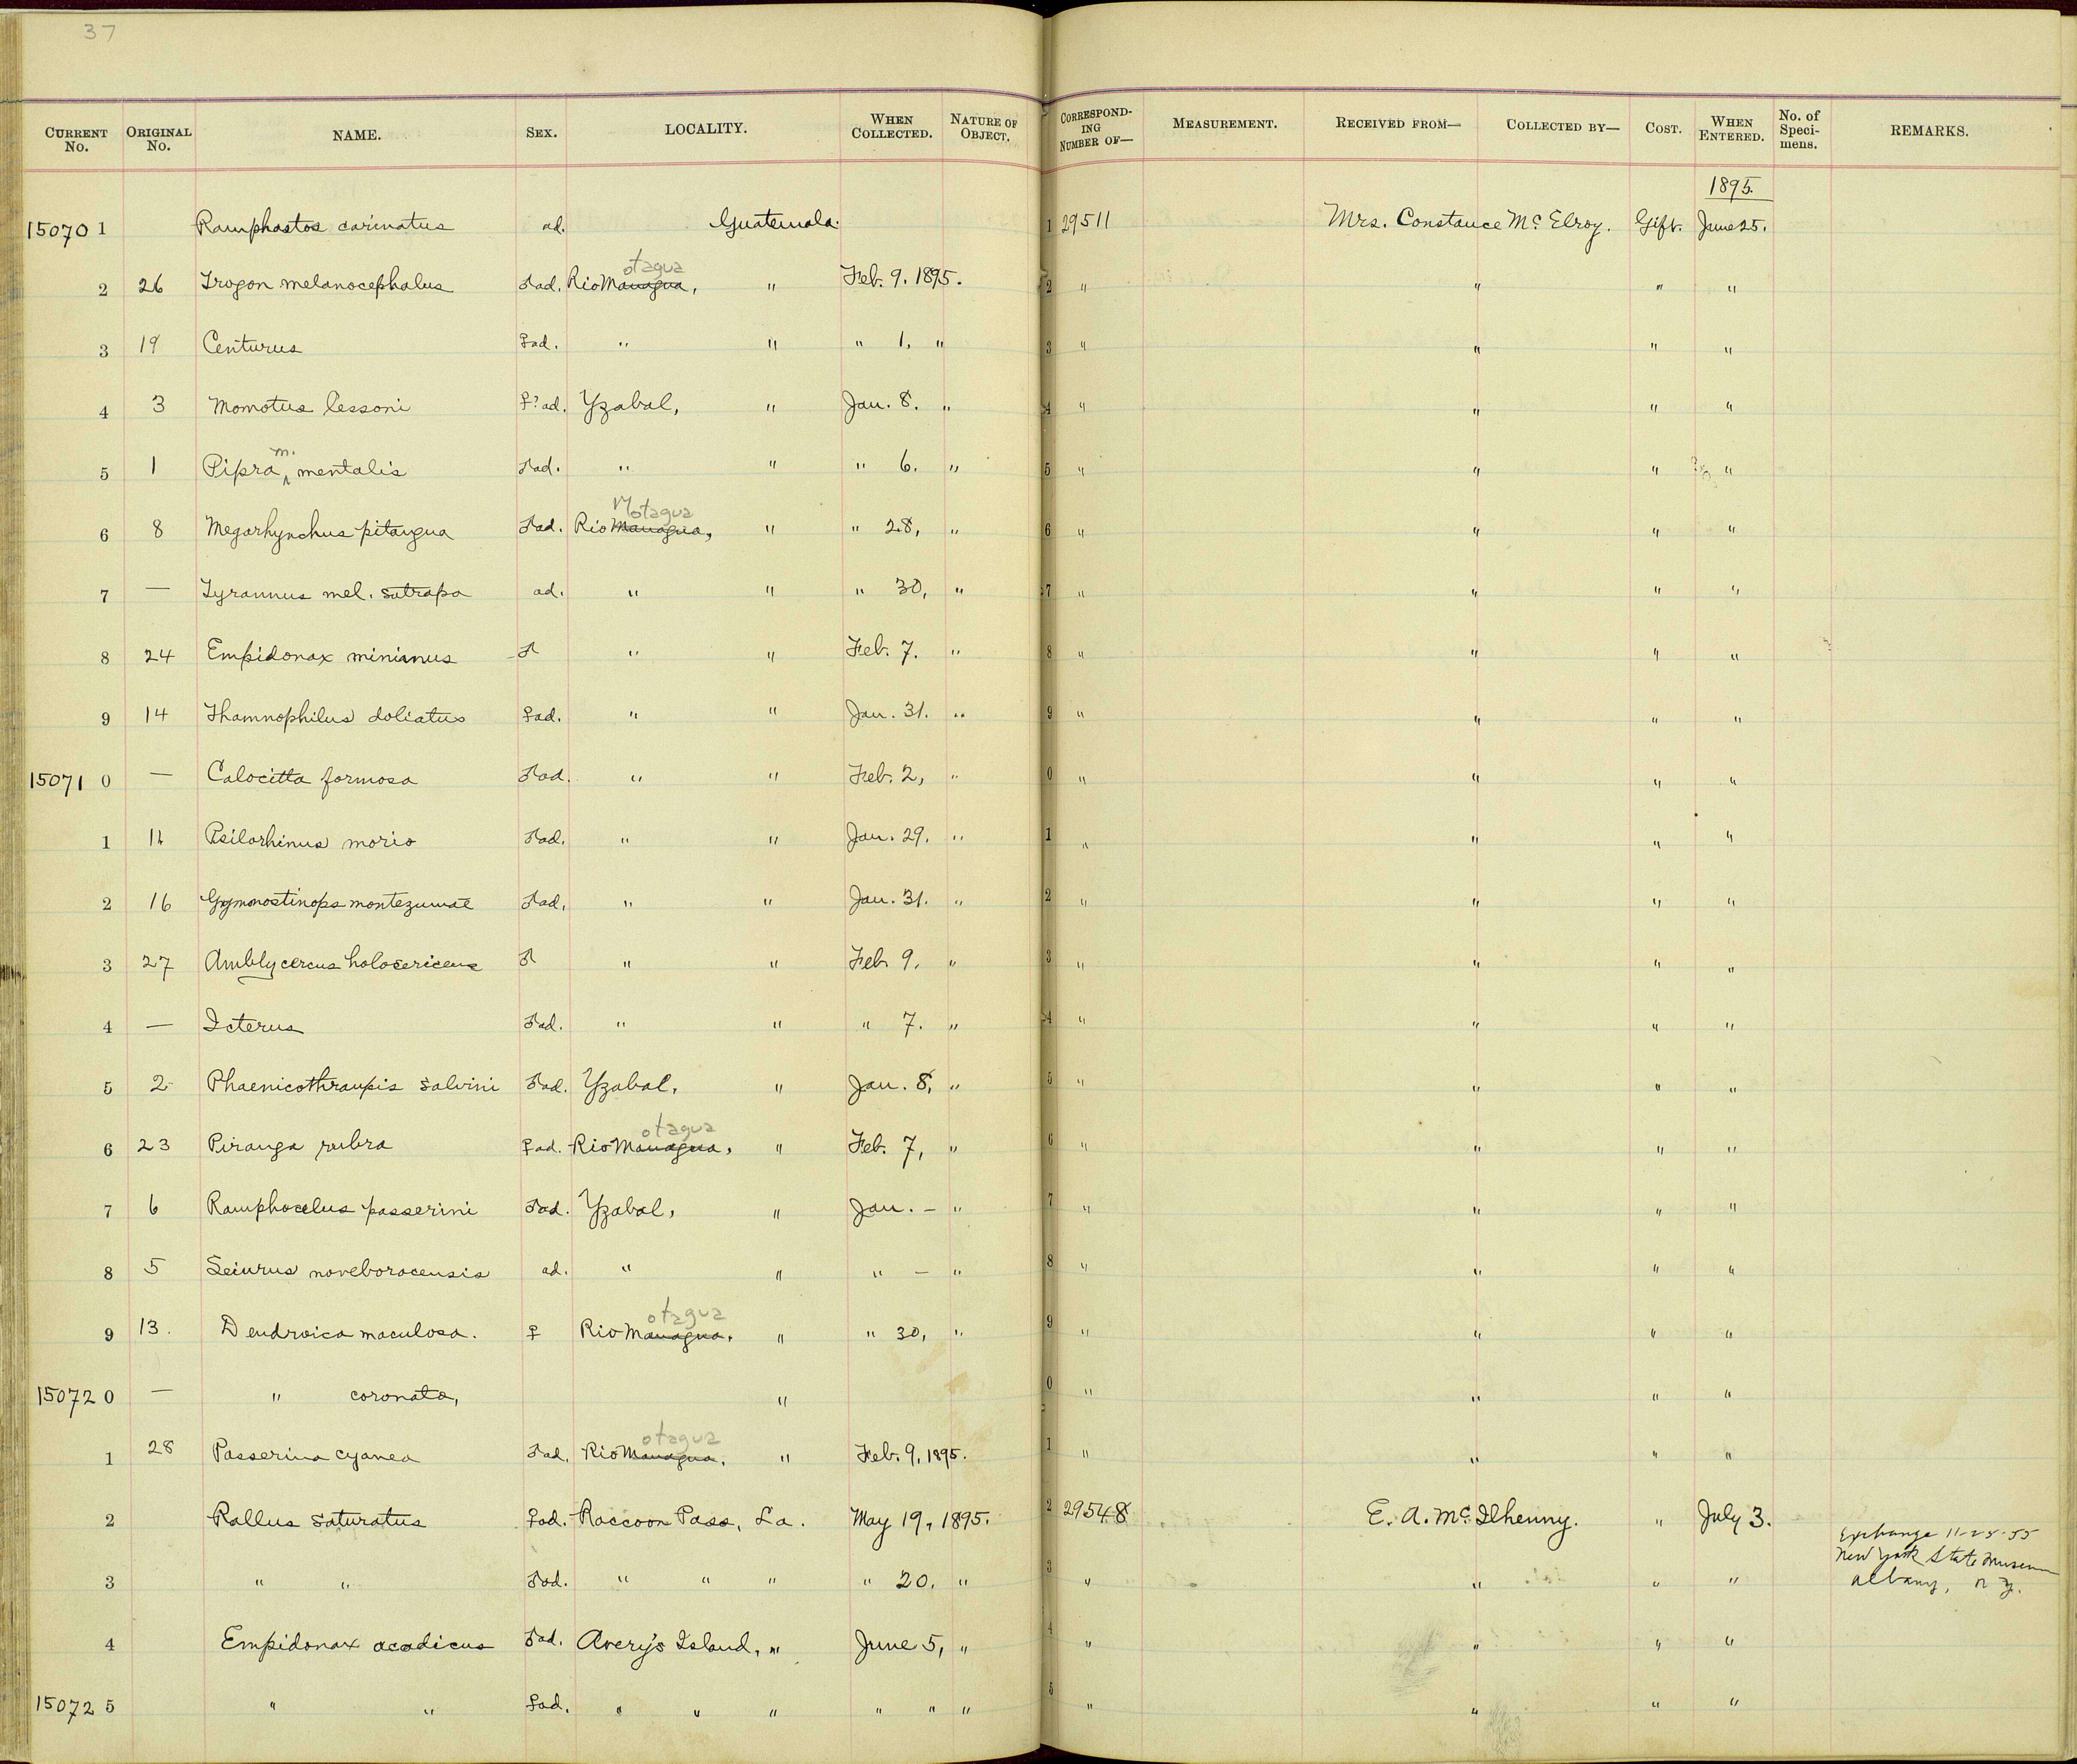 37
CURRENT No. ORIGINAL No. NAME. SEX. LOCALITY. WHEN COLLECTED. NATURE OF OBJECT. CORRESPONDING NUMBER OF— MEASUREMENT. RECEIVED FROM— COLLECTED BY— COST. WHEN ENTERED. No. of Specimens. REMARKS.
1895.
15070 1 Ramphastos carinatus ad. Guatemala. 1 29511 Mrs. Constance Mc Elroy. Gift. June 25.
otagua
2 26 Trogon melanocephalus ♂ad. Rio Managua, " Feb. 9. 1895. 2 " " " "
3 19 Centurus ♀ad. " " " 1, " 3 " " " "
4 3 Momotus lessoni ♀?ad. Yzabal, " Jan. 8. " 4 " " " "
m.
5 1 Pipra ‸ mentalis ♂ad. " " " 6. " 5 " " " "
Motagua
6 8 Megarhynchus pitangua ♂ad. Rio Managua, " " 28, " 6 " " " "
7 — Tyrannus mel. satrapa ad. " " " 30, " 7 " " " "
8 24 Empidonax minimus ♂ " " Feb. 7. " 8 " " " "
9 14 Thamnophilus doliatus ♀ad. " " Jan. 31. " 9 " " " "
15071 0 — Calocitta formosa ♂ad. " " Feb. 2, " 0 " " " "
1 11 Psilorhinus morio ♂ad. " " Jan. 29. " 1 " " " "
2 16 Gymnostinops montezumae ♂ad. " " Jan. 31. " 2 " " " "
3 27 Amblycercus holosericeus ♂ " " Feb. 9. " 3 " " " "
4 — Icterus ♂ad. " " " 7. " 4 " " " "
5 2 Phaenicothraupis salvini ♂ad. Yzabal, " Jan. 8, " 5 " " " "
otagua
6 23 Piranga rubra ♀ad. Rio Managua, " Feb. 7, " 6 " " " "
7 6 Ramphocelus passerini ♂ad. Yzabal, " Jan. — " 7 " " " "
8 5 Seiurus noveboracensis ad. " " " — " 8 " " " "
otagua
9 13. Dendroica maculosa. ♀ Rio Managua, " " 30, " 9 " " " "
15072 0 — " coronata, " 0 " " " "
otagua
1 28 Passerina cyanea ♂ad. Rio Managua, " Feb. 9, 1895. 1 " " " "
2 Rallus saturatus ♀ad. Raccoon Pass, La. May 19, 1895. 2 29548 E. A. Mc Ilhenny. " July 3.
Exchange 11-25-55
New York State Museum
Albany, N.Y.
3 " " ♂ad. " " " " 20. " 3 " " " "
4 Empidonax acadicus ♂ad. Avery's Island, " June 5, " 4 " " " "
15072 5 " " ♀ad. " " " " " " 5 " " " "